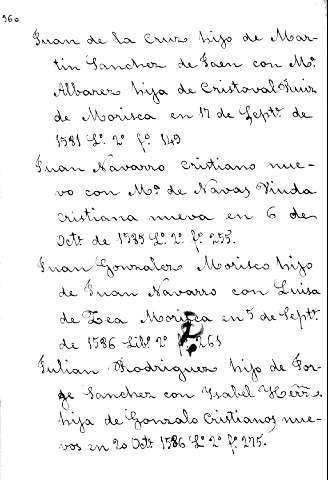 960
Juan de la Cruz hijo de Mar-
tin Sanchez de Jaen con Mª
Albarez hija de Cristoval Ruiz
de Morisca en 17 de Septe. de
1581 Lº. 2º fº. 149
Juan Navarro cristiano nue-
vo con Mª de Navas Viuda
cristiana nueva en 6 de
Octe de 1585 Lº. 2º. fº. 255.
Juan Gonzalez Morisco hijo
de Juan Navarro con Luisa
de Zea Morisca en 5 de Septe.
de 1586 Libº. 2º fº. 261
Julian Rodriguez hijo de Jor-
ge Sanchez con Ysabel Herrz.
hija de Gonzalo Cristianos nue-
vos en 20 Octe 1586 Lº. 2º fº. 275.